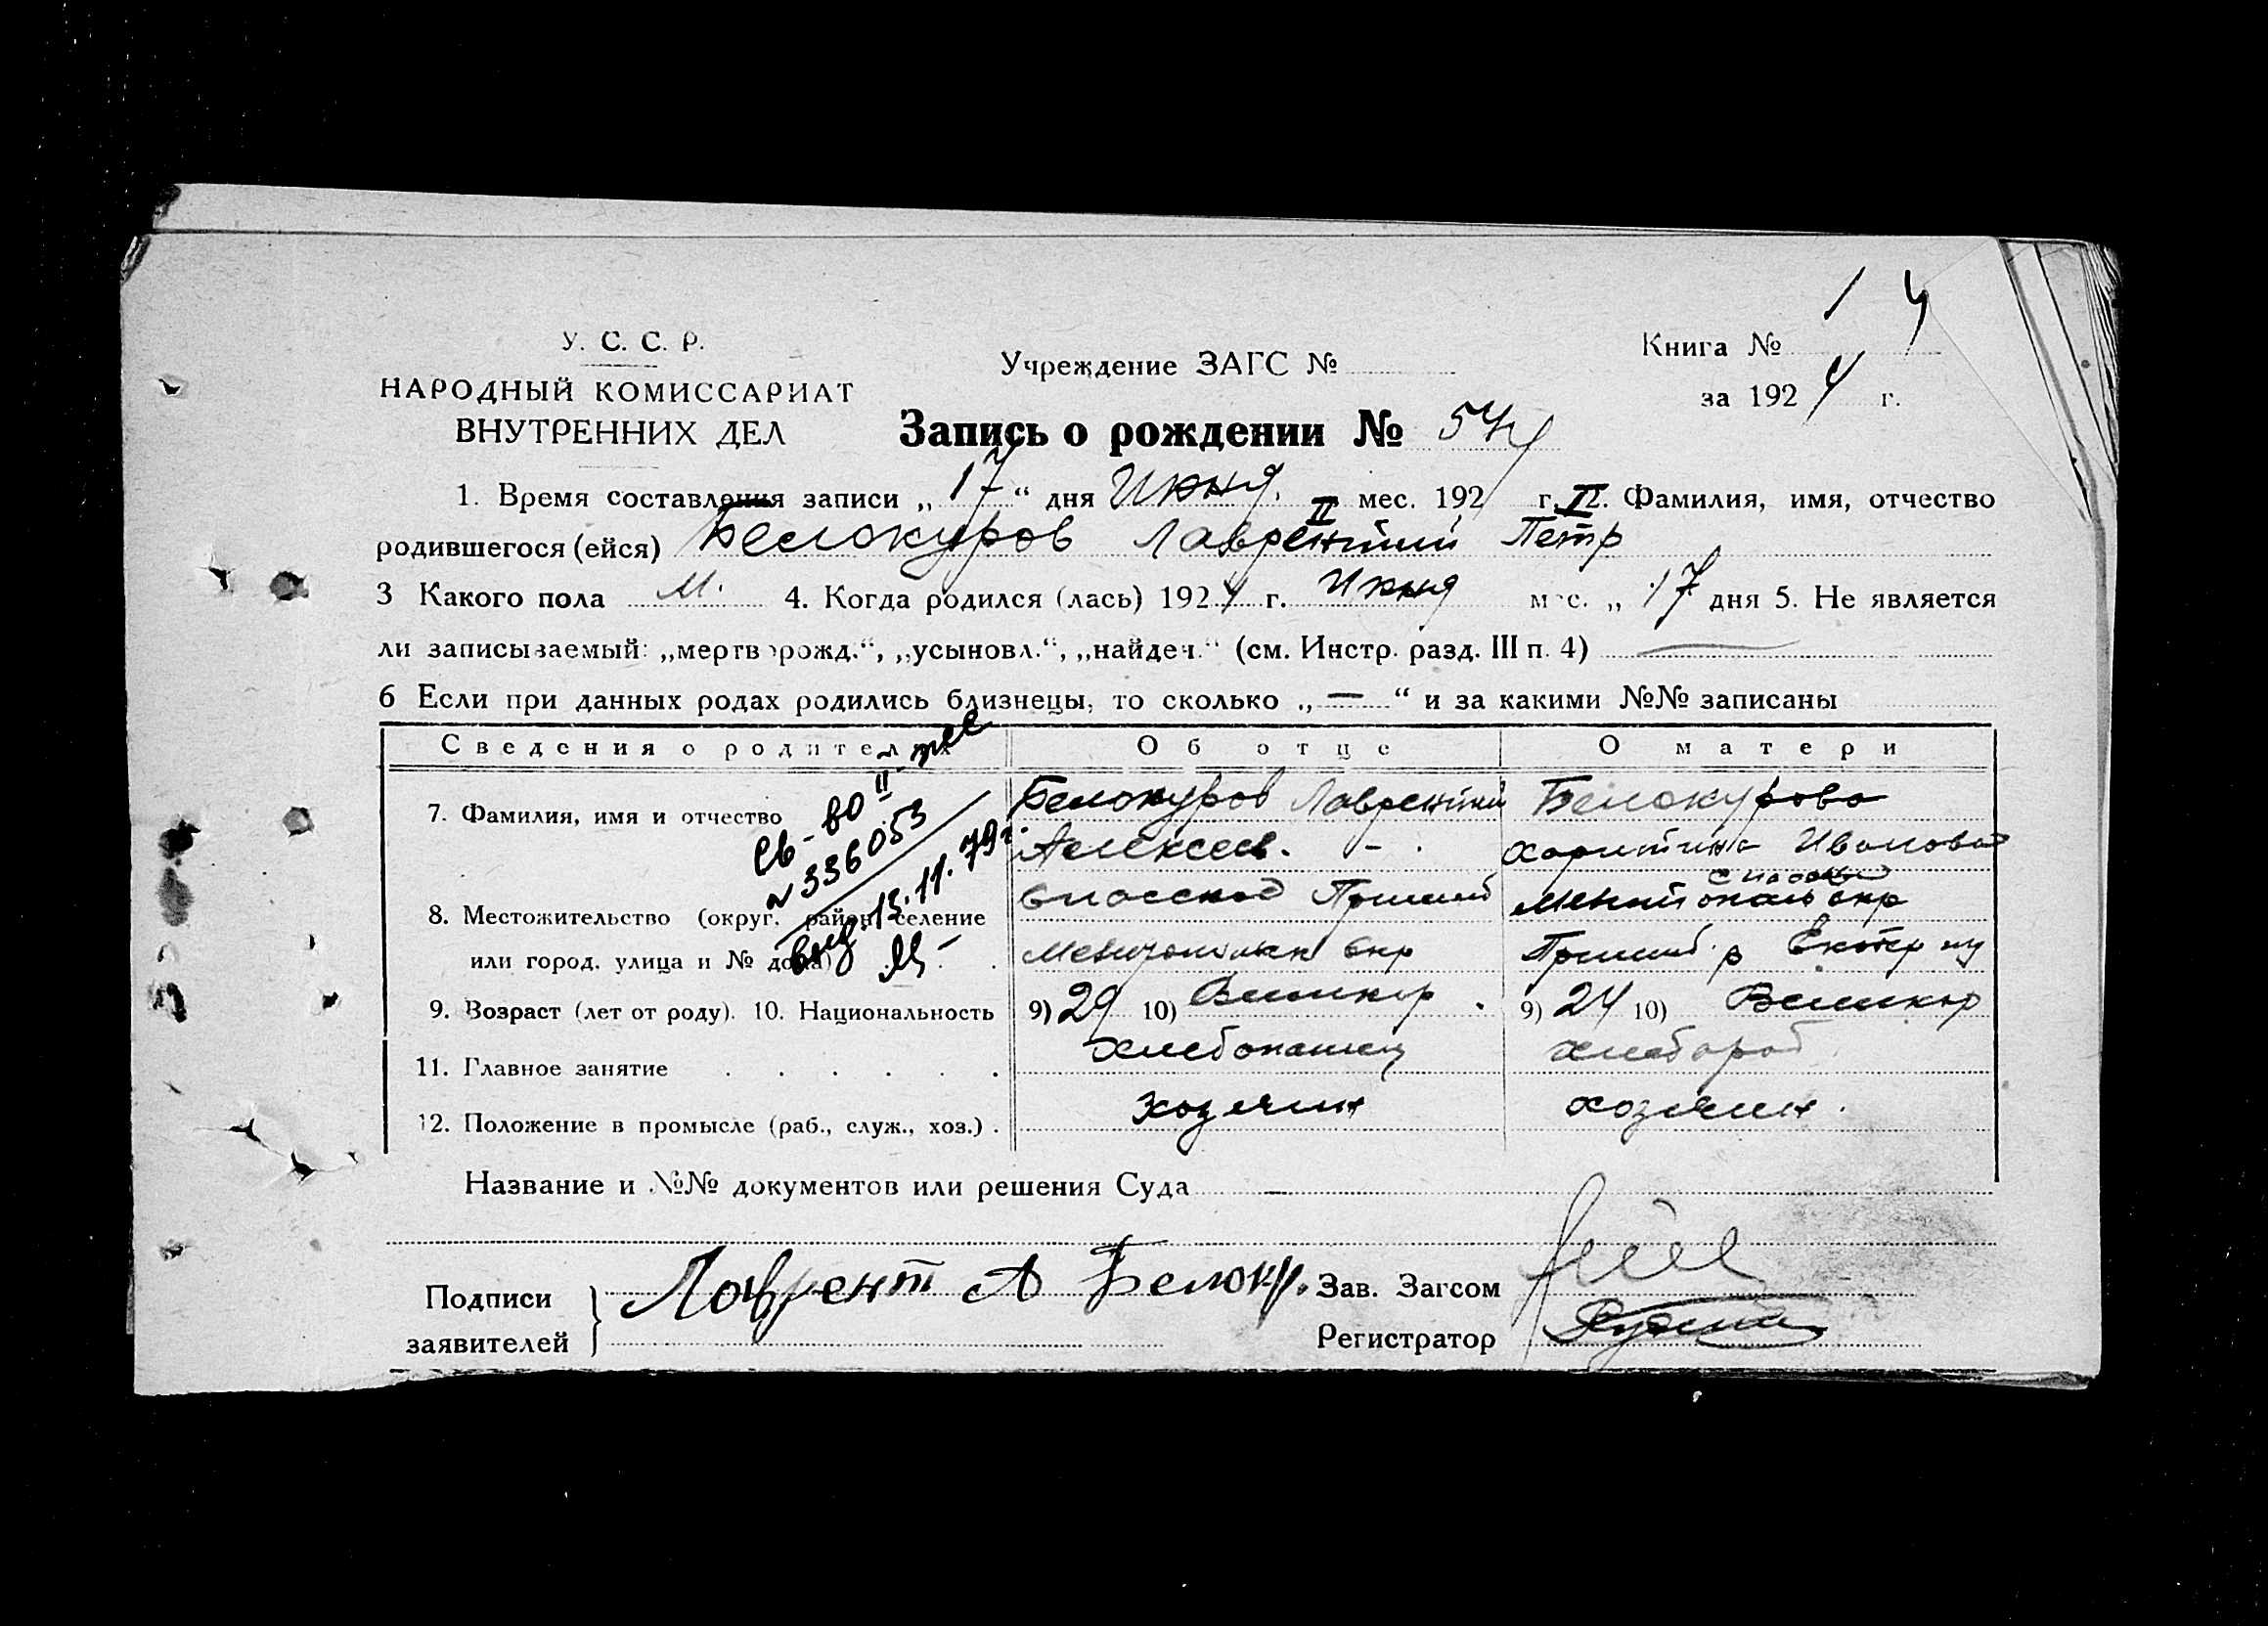 1 4
У. С. С. Р.
НАРОДНЫЙ КОМИССАРИАТ
ВНУТРЕННИХ ДЕЛ
Учреждение ЗАГС №
Книга №
за 1924 г.
Запись о рождении № 544
1. Время составления записи „17“ дня Июня. II мес. 192 г. 2. Фамилия, имя, отчество
родившегося (ейся) Белокуров Лаврентий II Петр
3 Какого пола М. 4. Когда родился (лась) 1924 г. Июня мес. „17 дня 5. Не является
ли записываемый: „мертворожд.“, „усыновл.“, „найден.“ (см. Инстр. разд. III п. 4) —
6 Если при данных родах родились близнецы, то сколько „—“ и за какими №№ записаны
Сведения о родителях Об отце О матери
7. Фамилия, имя и отчество Белокуров Лаврентий Белокурова
Алексеев. - . Харитина Иванова
св-во II
№ 336053
13.11.79г.
8. Местожительство (округ, район, селение Спасское Пришиб
или город, улица и № дома) окр Пришиб р
9. Возраст (лет от роду). 10. Национальность 9) 29 10) Великор. 9) 24 10) Великор
11. Главное занятие хлебопашец хлебороб
12. Положение в промысле (раб., служ., хоз.) . хозяин хозяин.
Название и №№ документов или решения Суда —
Подписи
заявителей
Лаврент А Белокур.
Зав. Загсом
Регистратор